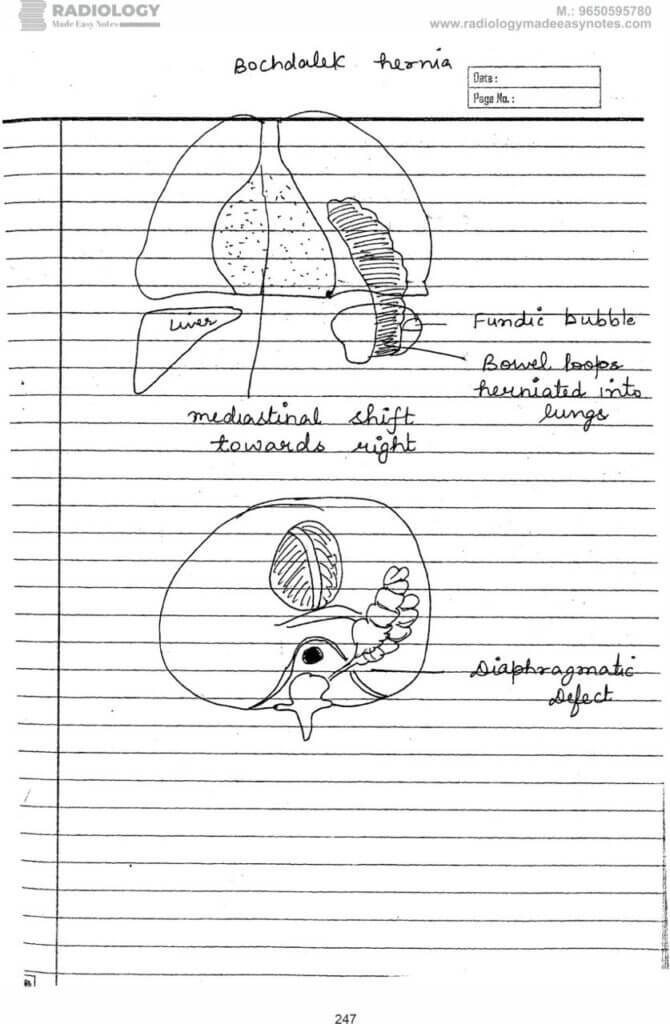 RADIOLOGY
Made Easy Notes
M.: 9650595780
www.radiologymadeeasynotes.com
Bochdalek hernia
Date :
Page No. :
Liver
Fundic bubble
Bowel loops
herniated into
lungs
mediastinal shift
towards right
Diaphragmatic
Defect
247